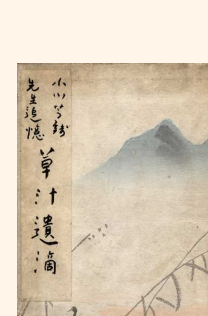 小川芋銭
先生追憶
草汁遺滴